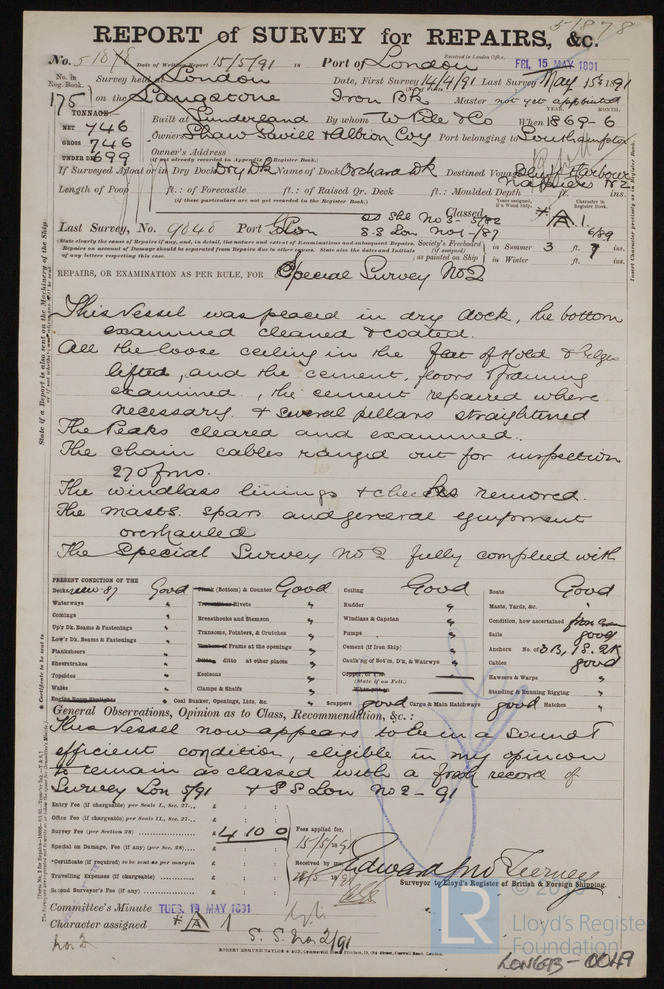 51878
REPORT of SURVEY for REPAIRS, &c.
No. 51878 Date of Writing Report 15/5/91 Port of London Received in London Office, FRI, 15 MAY 1891
No. in Reg. Book. Survey held at London Date, First Survey 14/4/91 Last Survey May 15th 1891
175 on the Langstone Iron Bk Master not yet appointed
TONNAGE Built at Sunderland By whom W Pile & Co When 1869-6
NET 746
GROSS 746 Owners Shaw Savill & Albion Coy Port belonging to Southampton
UNDER DK 699 Owner's Address
(if not already recorded in Appendix to Register Book.)
If Surveyed Afloat or in Dry Dock Dry Dk Name of Dock Orchard Dk Destined Voyage Bluff Harbour
Napier N Z
Length of Poop ft.: of Forecastle ft.: of Raised Qr. Deck ft.: Moulded Depth ft. ins.
(if these particulars are not yet recorded in the Register Book.)
Classed A 1.
Last Survey, No. 9040 Port Lon
SS Lon No 1-/87
6/89
Society's Freeboard (if assigned) as painted on Ship in Summer 3 ft. 7 ins.
in Winter ft. ins.
REPAIRS, OR EXAMINATION AS PER RULE, FOR Special Survey No 2
This Vessel was placed in dry dock, the bottom
examined cleaned & coated.
All the loose ceiling in the flat of Hold & bilges
lifted, and the cement, floors & framing
examined, the cement repaired where
necessary & several pillars straightened
The Peaks cleared and examined.
The chain cables ranged out for inspection
270 fms.
The windlass linings & cheeks removed.
The masts, spars and general equipment
overhauled
The Special Survey No 2 fully complied with
PRESENT CONDITION OF THE
Decks new 87 Good
Waterways "
Comings "
Up'r Dk. Beams & Fastenings "
Low'r Dk. Beams & Fastenings "
Planksheers "
Sheerstrakes "
Topsides "
Wales "
Engine Room Skylights
Plank (Bottom) & Counter Good
Treenails or Rivets "
Breasthooks and Stemson "
Transoms, Pointers, & Crutches "
Timbers or Frame at the openings "
Ditto, ditto at other places "
Keelsons "
Clamps & Shelfs "
Coal Bunker, Openings, Lids, &c. "
Ceiling Good
Rudder "
Windlass & Capstan "
Pumps "
Cement (if Iron Ship) "
Caulk'ng of Bot'm, D'k, & Watrwys "
(State if on Felt.)
When put on
Scuppers good Cargo & Main Hatchways good Hatches "
Boats Good
Masts, Yards, &c. "
Condition, how ascertained
Sails good
Anchors No. of 3B, 1S. 2K
Cables good
Hawsers & Warps "
Standing & Running Rigging "
General Observations, Opinion as to Class, Recommendation, &c.:
This Vessel now appears to be in a sound &
efficient condition, eligible in my opinion
to remain as classed with a fresh record of
Survey Lon 5/91 & S S Lon No 2-91
Entry Fee (if chargeable) per Scale I., Sec. 27
Office Fee (if chargeable) per Scale II., Sec. 27
Survey Fee (per Section 28) £ 4 10 0
Special on Damage, Fee (if any) (per Sec. 28)
*Certificate (if required) to be sent as per margin
Travelling Expenses (if chargeable)
Second Surveyor's Fee (if any)
Fees applied for,
15/5/1891
Received by me,
Edward Jno Tierney
Surveyor to Lloyd's Register of British & Foreign Shipping.
Committee's Minute TUES. 19 MAY 1891
Character assigned A 1
S. S. No 2/91
No 2
ROBERT EDMUND TAYLOR & SON
© 2020
LR
Lloyd's Register
Foundation
LON663-0049